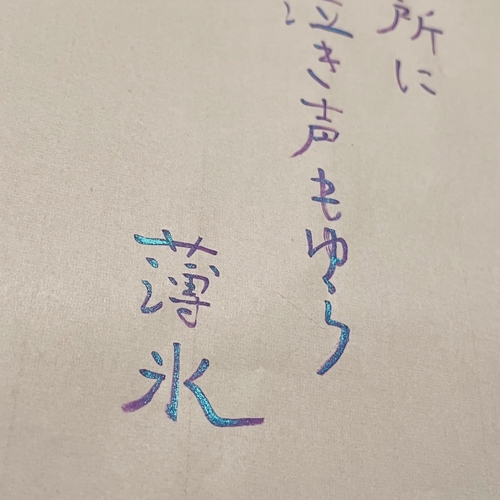 所に
泣き声もゆらら
薄氷